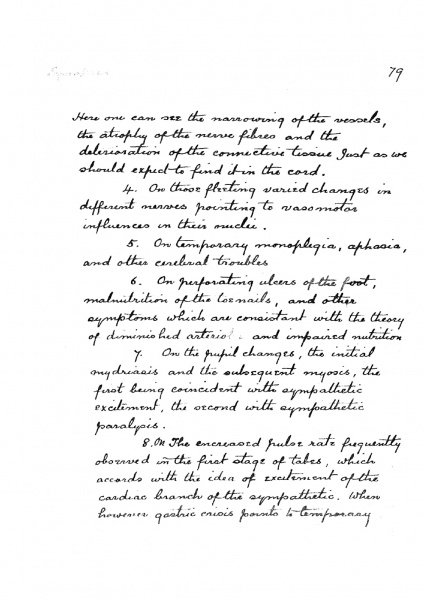 79
Here one can see the narrowing of the vessels,
the atrophy of the nerve fibres and the
deterioration of the connective tissue Just as we
should expect to find it in the cord.
4. On those fleeting varied changes in
different nerves pointing to vasomotor
influences in their nuclei.
5. On temporary monoplegia, aphasia,
and other cerebral troubles
6. On perforating ulcers of the foot,
malnutrition of the toenails, and other
symptoms which are consistant with the theory
of diminished and impaired nutrition
7. On the pupil changes, the initial
mydriasis and the subsequent myosis, the
first being coincident with sympathetic
excitement, the second with sympathetic
paralysis.
8. On The encreased pulse rate frequently
observed in the first stage of tabes, which
accords with the idea of excitement of the
cardiac branch of the sympathetic. When
however gastric crisis points to temporary